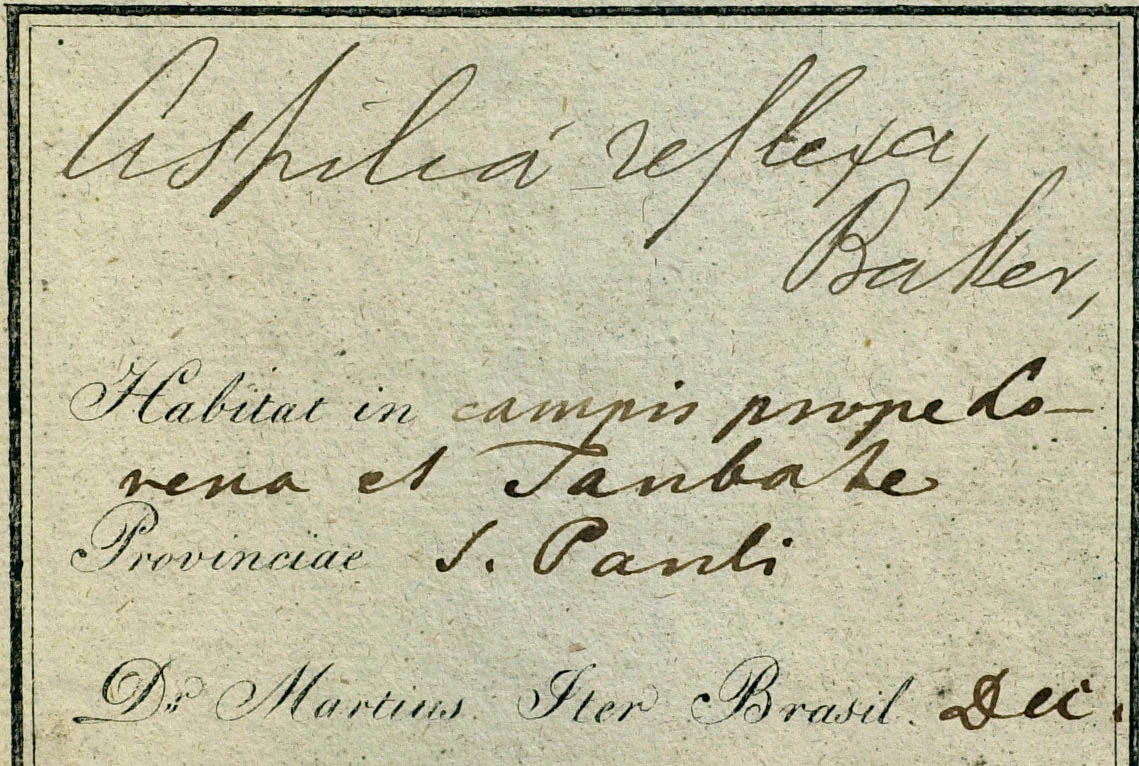 Aspilia reflexa,
Baker,
Habitat in campis prope Lo-
rena et Taubate
Provinciae S. Pauli
Dr. Martius Iter Brasil. Dec.